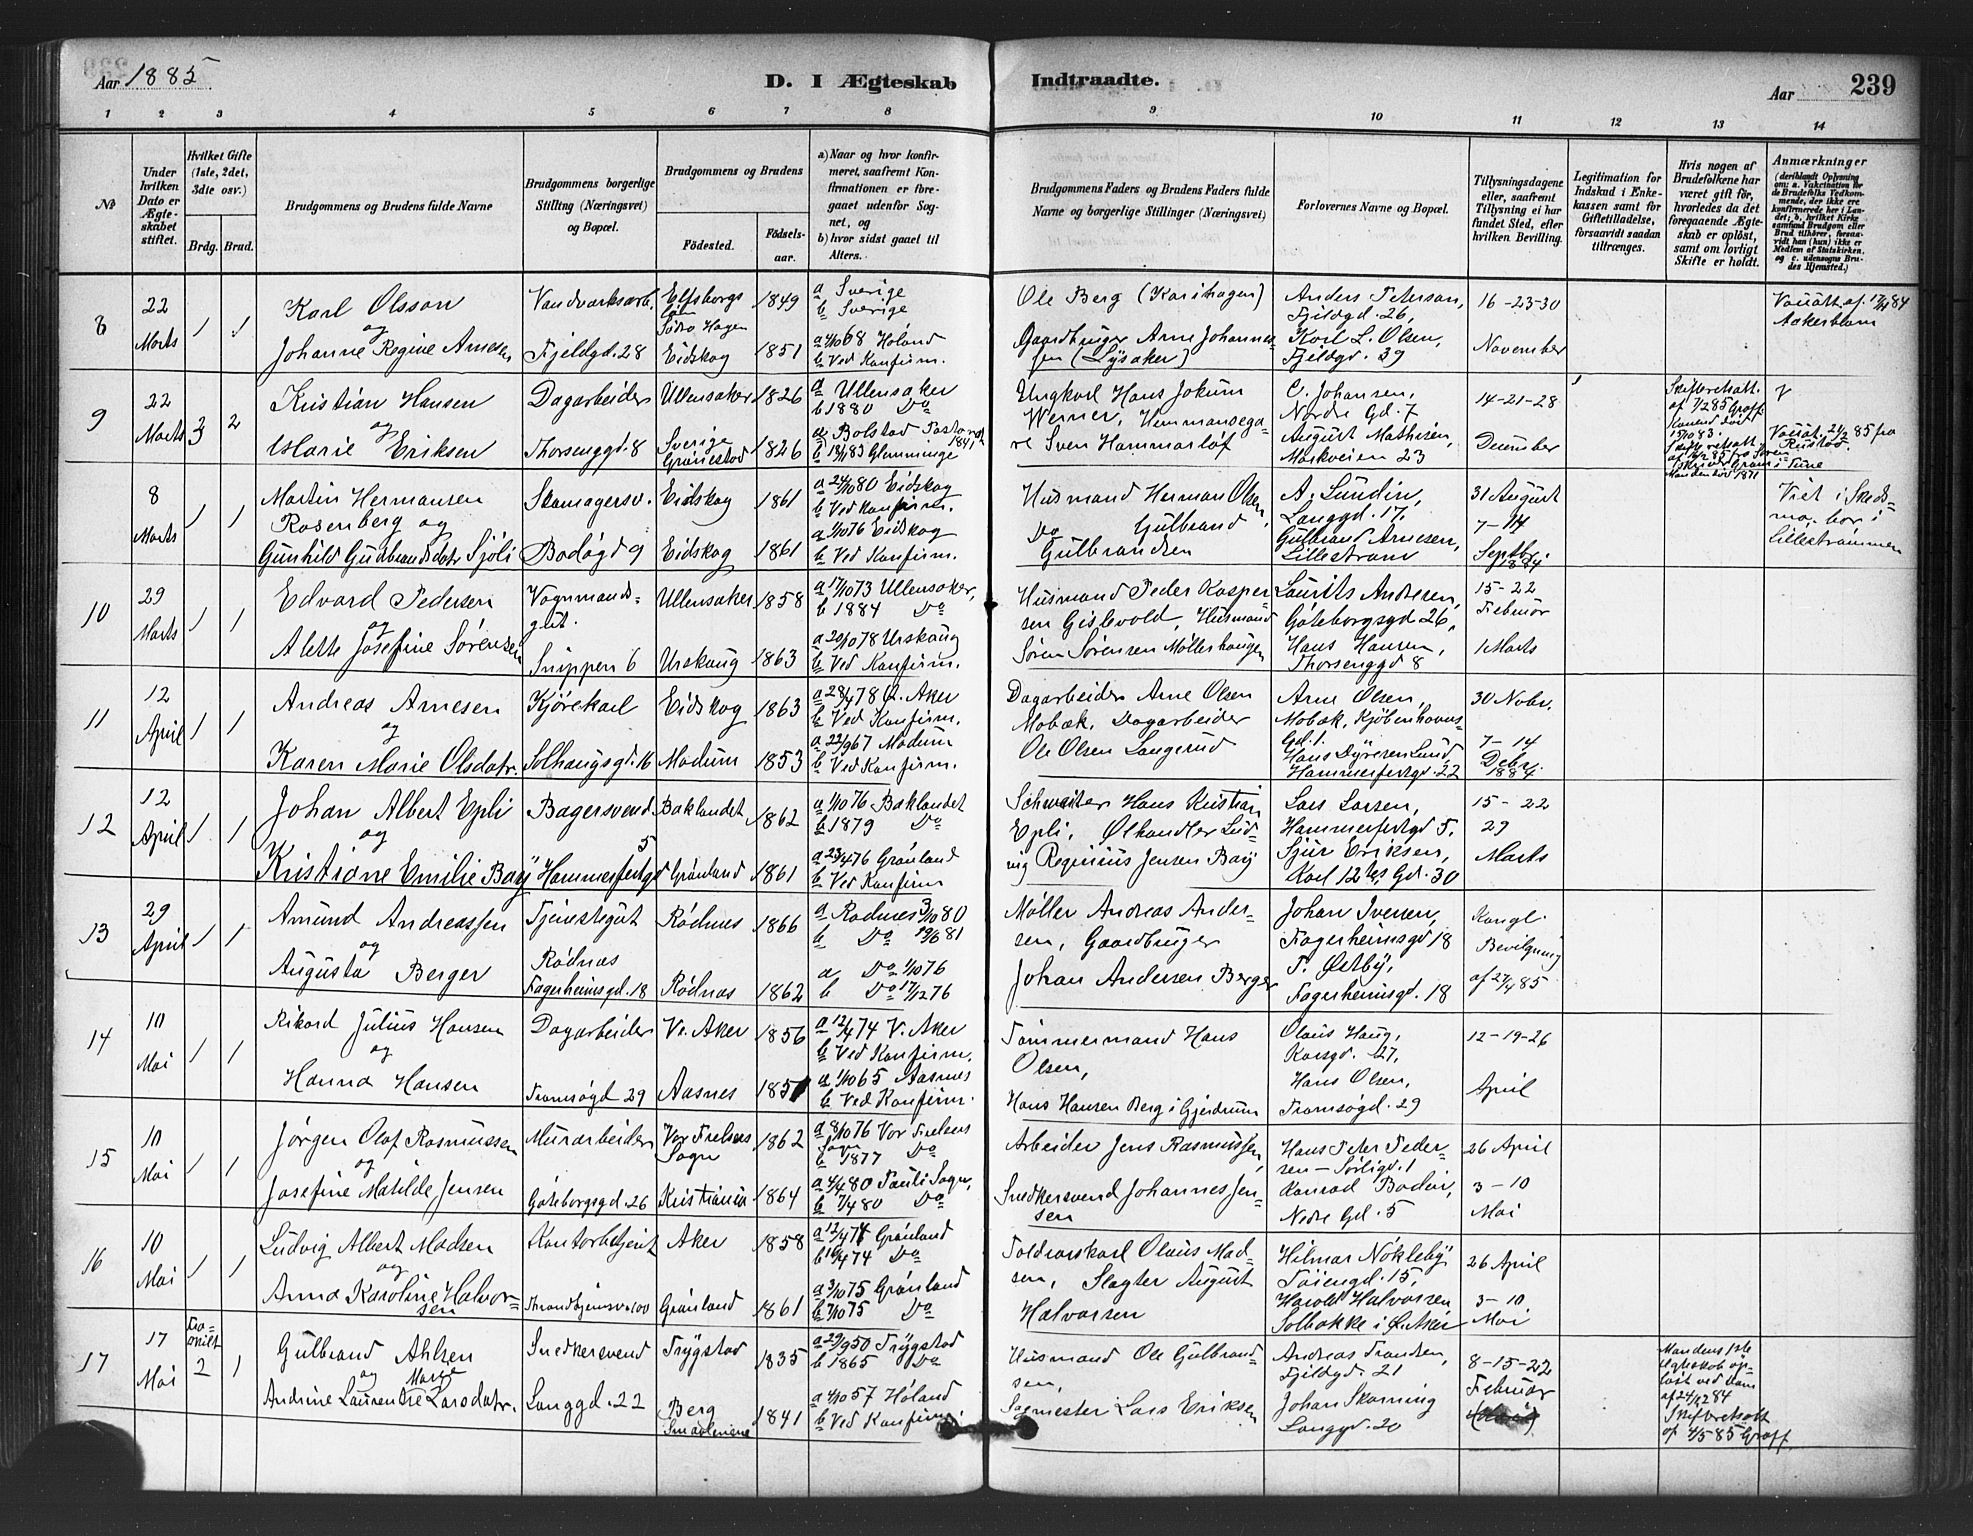 Aar 1885
D. I Ægteskab
Indtraadte.
Aar
239
1 2 3 4 5 6 7 8 9 10 11 12 13 14
№
Under hvilken Dato er Ægteskabet stiftet.
Hvilket Gifte (1ste, 2det, 3die osv.)
Brdg. Brud.
Brudgommens og Brudens fulde Navne
Brudgommens borgerlige Stilling (Næringsvei) og Bopæl.
Brudgommens og Brudens
Fødested.
Fødselsaar.
a) Naar og hvor konfirmeret, saafremt Konfirmationen er foregaaet udenfor Sognet, og
b) hvor sidst gaaet til Alters.
Brudgommens Faders og Brudens Faders fulde Navne og borgerlige Stillinger (Næringsvei)
Forlovernes Navne og Bopæl.
Tillysningsdagene eller, saafremt Tillysning ei har fundet Sted, efter hvilken Bevilling.
Legitimation for Indskud i Enkekassen samt for Giftetilladelse, forsaavidt saadan tiltrænges.
Hvis nogen af Brudefolkene har været gift før, hvorledes da det foregaaende Ægteskab er opløst, samt om lovligt Skifte er holdt.
Anmærkninger (deriblandt Oplysning om: a. Vakcination for de Brudefolks Vedkommende, der ikke ere konfirmerede her i Landet; b. hvilket Kirkesamfund Brudgom eller Brud tilhører, forsaavidt han (hun) ikke er Medlem af Statskirken, og c. udensogns Brudes Hjemsted.)
8
22 Marts
1 1
Karl Olsson
og
Johanne Regine Arnesen
Vandværksarb.
Fjeldgd. 28
Elfsborgs Län
Södra Hagen
Eidskog
1849
1851
a Sverige
b Sverige
a 4/10 68 Höland
b Ved Konfirm.
Ole Berg (Karlshagen)
Gaardbruger Arne Johannessen (Lysaker)
Anders Peterson,
Fjeldgd. 26,
Karl L. Olsen,
Fjeldgd. 39
16-23-30
November
Ackerblom
9
22 Marts
3 2
Kristian Hansen
og
Marie Eriksen
Dagarbeider
Thorsenggd. 8
Ullensaker
Sverige
1826
1826
a Ullensaker
b 1880 Do
a Bolstad
b 18/1 83 Glemminge
Ungkarl Hans Jokum
Werner, Hemmansegare Sven Hammarlöf
C. Johansen,
Nordre Gd. 7
August Mathisen,
Markveien 23
14-21-28
December
Rustad
8 Marts
1 1
Martin Hermansen
Rosenberg og
Gunhild Gudbrandsdatr Sjöli
Stamagersv.
Bodögd 9
Eidskog
Eidskog
1861
1861
a 24/10 80 Eidskog
b Ved Konfirm.
a 1/10 76 Eidskog
b Ved Konfirm.
Husmand Herman Olsen,
Do Gulbrand
Gulbrandsen
A. Lundin,
Langgd. 17,
Gulbrand Arnesen,
Lillestrøm
31 August
7-14
Septbr.
1884
Viet i Skedsmo, bor i
Lillestrømmen
10
29 Marts
1 1
Edvard Pedersen
og
Alette Josefine Sörensen
Vognmandsgut.
Snippen 6
Ullensaker
Urskoug
1858
1863
a 17/10 73 Ullensaker,
b 1884 Do
a 20/10 78 Urskoug
b Ved Konfirm.
Husmand Peder Kaspersen Gislevold, Husmand
Sören Sörensen Möllerhaugen
Laurits Andersen,
Göteborgsgd. 26,
Hans Hansen,
Thorsenggd 8
15-22
Februar
1 Marts
11
12 April
1 1
Andreas Arnesen
og
Karen Marie Olsdatr.
Kjörekarl
Solhaugsgd. 16
Eidskog
Modum
1863
1853
a 28/4 78 Ö. Aker
b Ved Konfirm.
a 22/9 67 Modum
b Ved Konfirm.
Dagarbeider Arne Olsen
Mobæk, Dagarbeider
Ole Olsen Langerud
Arne Olsen,
Mobæk, Kjöbenhavns
Gd. 1.
Hans Dyresen Lund,
Hammerfestgd. 22
30 Nobr.
7-14
Debr.
1884
12
12 April
1 1
Johan Albert Epli
og
Kristiane Emilie Bay
Bagersvend
Hammerfestgd 5
Baklandet
Grönland
1862
1861
a 1/10 76 Baklandet
b 1879 Do
a 23/4 76 Grönland
b Ved Konfirm
Schweitser Hans Kristian
Epli, Ølhandler Ludvig Reginius Jensen Bay
Lars Larsen,
Hammerfestgd 5,
Sjur Eriksen,
Karl 12tes Gd. 30
15-22
29
Marts
13
29 April
1 1
Amund Andreassen
og
Augusta Berger
Tjenestegut
Rödnæs
Fagerheimsgd. 18
Rödnæs
Rödnæs
1866
1862
a Rödnes 3/10 80
b Do 19/6 81
a Do 1/10 76
b Do 17/12 76
Møller Andreas Andersen, Gaardbruger
Johan Andersen Berger
Johan Iversen,
Fagerheimsgd 18
T. Østby,
Fagerheimsgd. 18
Kongl.
Bevilgning
af 27/4 85
14
10 Mai
1 1
Rikard Julius Hansen
og
Hanna Hansen
Dagarbeider
Tromsögd 29
V. Aker
Aasnes
1856
a 12/4 74 V. Aker
b Ved Konfirm.
a 1/10 65 Aasnes
b Ved Konfirm.
Tømmermand Hans
Olsen,
Hans Hansen Berg i Gjerdrum
Olaus Haug,
Korsgd. 27,
Hans Olsen,
Tromsøgd. 29
12-19-26
April
15
10 Mai
1 1
Jörgen Olaf Rasmussen
og
Josefine Matilde Jensen
Murarbeider
Göteborgsgd. 26
Vor Frelsers Sogn
Kristiania
1862
1864
a 8/10 76 Vor Frelsers
b 1877 Do
a 4/4 80 Pauli Sogn,
b 7/4 80 Do
Arbeider Jens Rasmussen,
Snedkersvend Johannes Jensen
Hans Peter Pedersen – Sörligd. 1
Konrad Bodin,
Nedre Gd. 5
26 April
3-10
Mai
16
10 Mai
1 1
Ludvig Albert Madsen
og
Anna Karoline Halvorsen
Kontorbetjent
Grönland
Aker
1858
1861
a 12/4 74 Grönland
b 16/4 74 Do
a 3/10 75 Grönland
b 7/10 75 Do
Toldroerskarl Olaus Madsen, Slagter August
Halvorsen
Hilmar Nökleby
Töiengd. 15,
Harold Halvorsen
Solbakke i Ø. Aker
26 April
3-10
Mai
17
17 Mai
Fraskilt
2 1
Gulbrand Ahlsen
og
Andrine Laurentze Marie Larsdatr.
Snedkersvend
Langgd. 22
Trygstad
Berg
Smaalenene
1835
1841
a 29/9 50 Trygstad
b 1865 Do
a 4/10 57 Höland
b Ved Konfirm.
Husmand Ole Gulbrandsen,
Sagmester Lars Eriksen
Andreas Frandsen,
Fjeldgd. 21
Johan Skarning
Langgd. 20
8-15-22
Februar
Mandens 1ste
Egteskab opløst ved Dom
af 24/12 84
Skifteretsatt
af 4/5 85 Graff